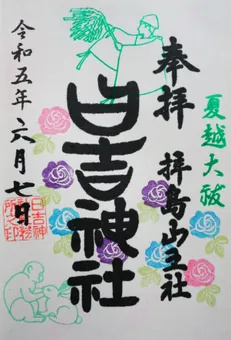 夏越大祓
奉拝
拝島山王社
日吉神社
令和五年六月七日
日吉神
社務
所之印